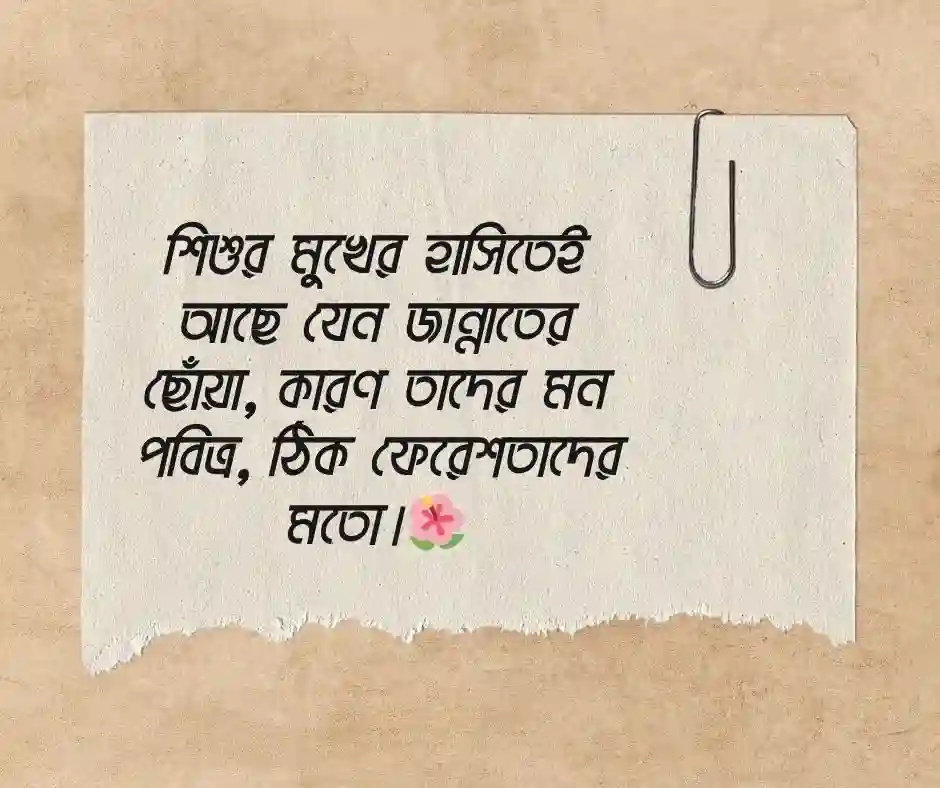 শিশুর মুখের হাসিতেই
আছে যেন জান্নাতের
ছোঁয়া, কারণ তাদের মন
পবিত্র, ঠিক ফেরেশতাদের
মতো।🌺